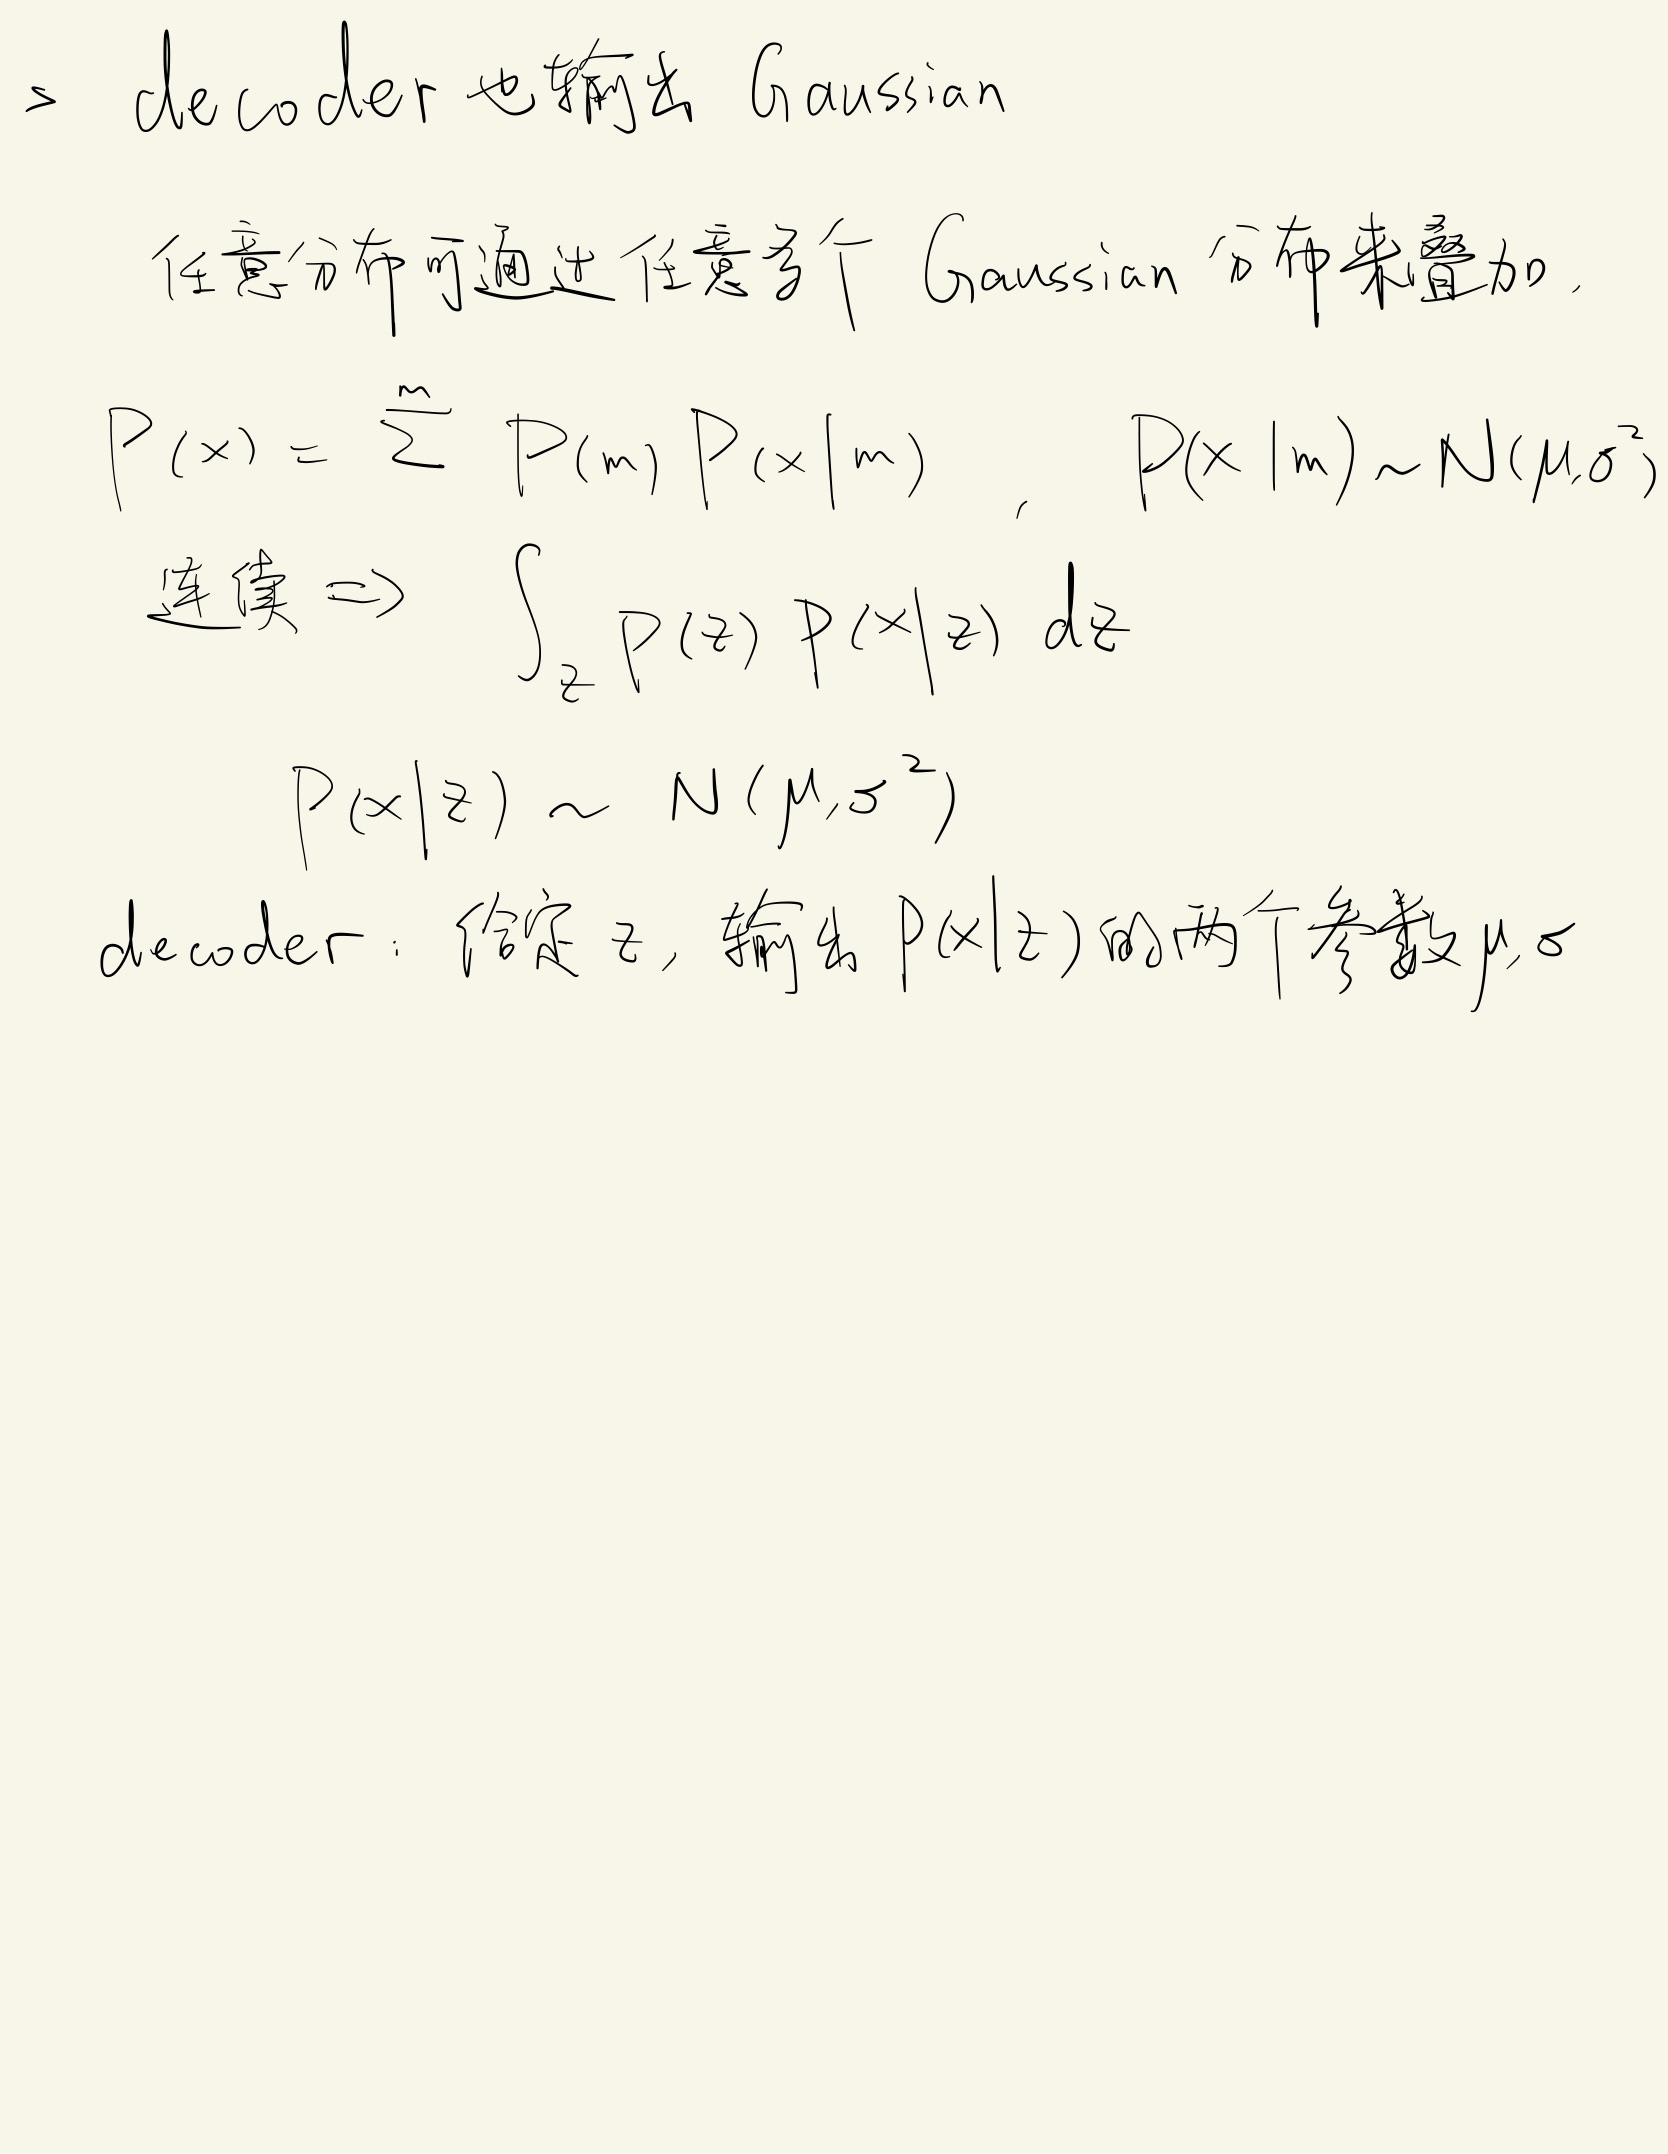 > decoder 也输出 Gaussian
任意分布可通过任意多个 Gaussian 分布来叠加.
P(x) = \sum^{m} P(m) P(x|m) , P(x|m) ~ N(μ,σ²)
连续 ⇒ ∫_z P(z) P(x|z) dz
P(x|z) ~ N(μ,σ²)
decoder: 给定 z, 输出 P(x|z) 的两个参数 μ,σ